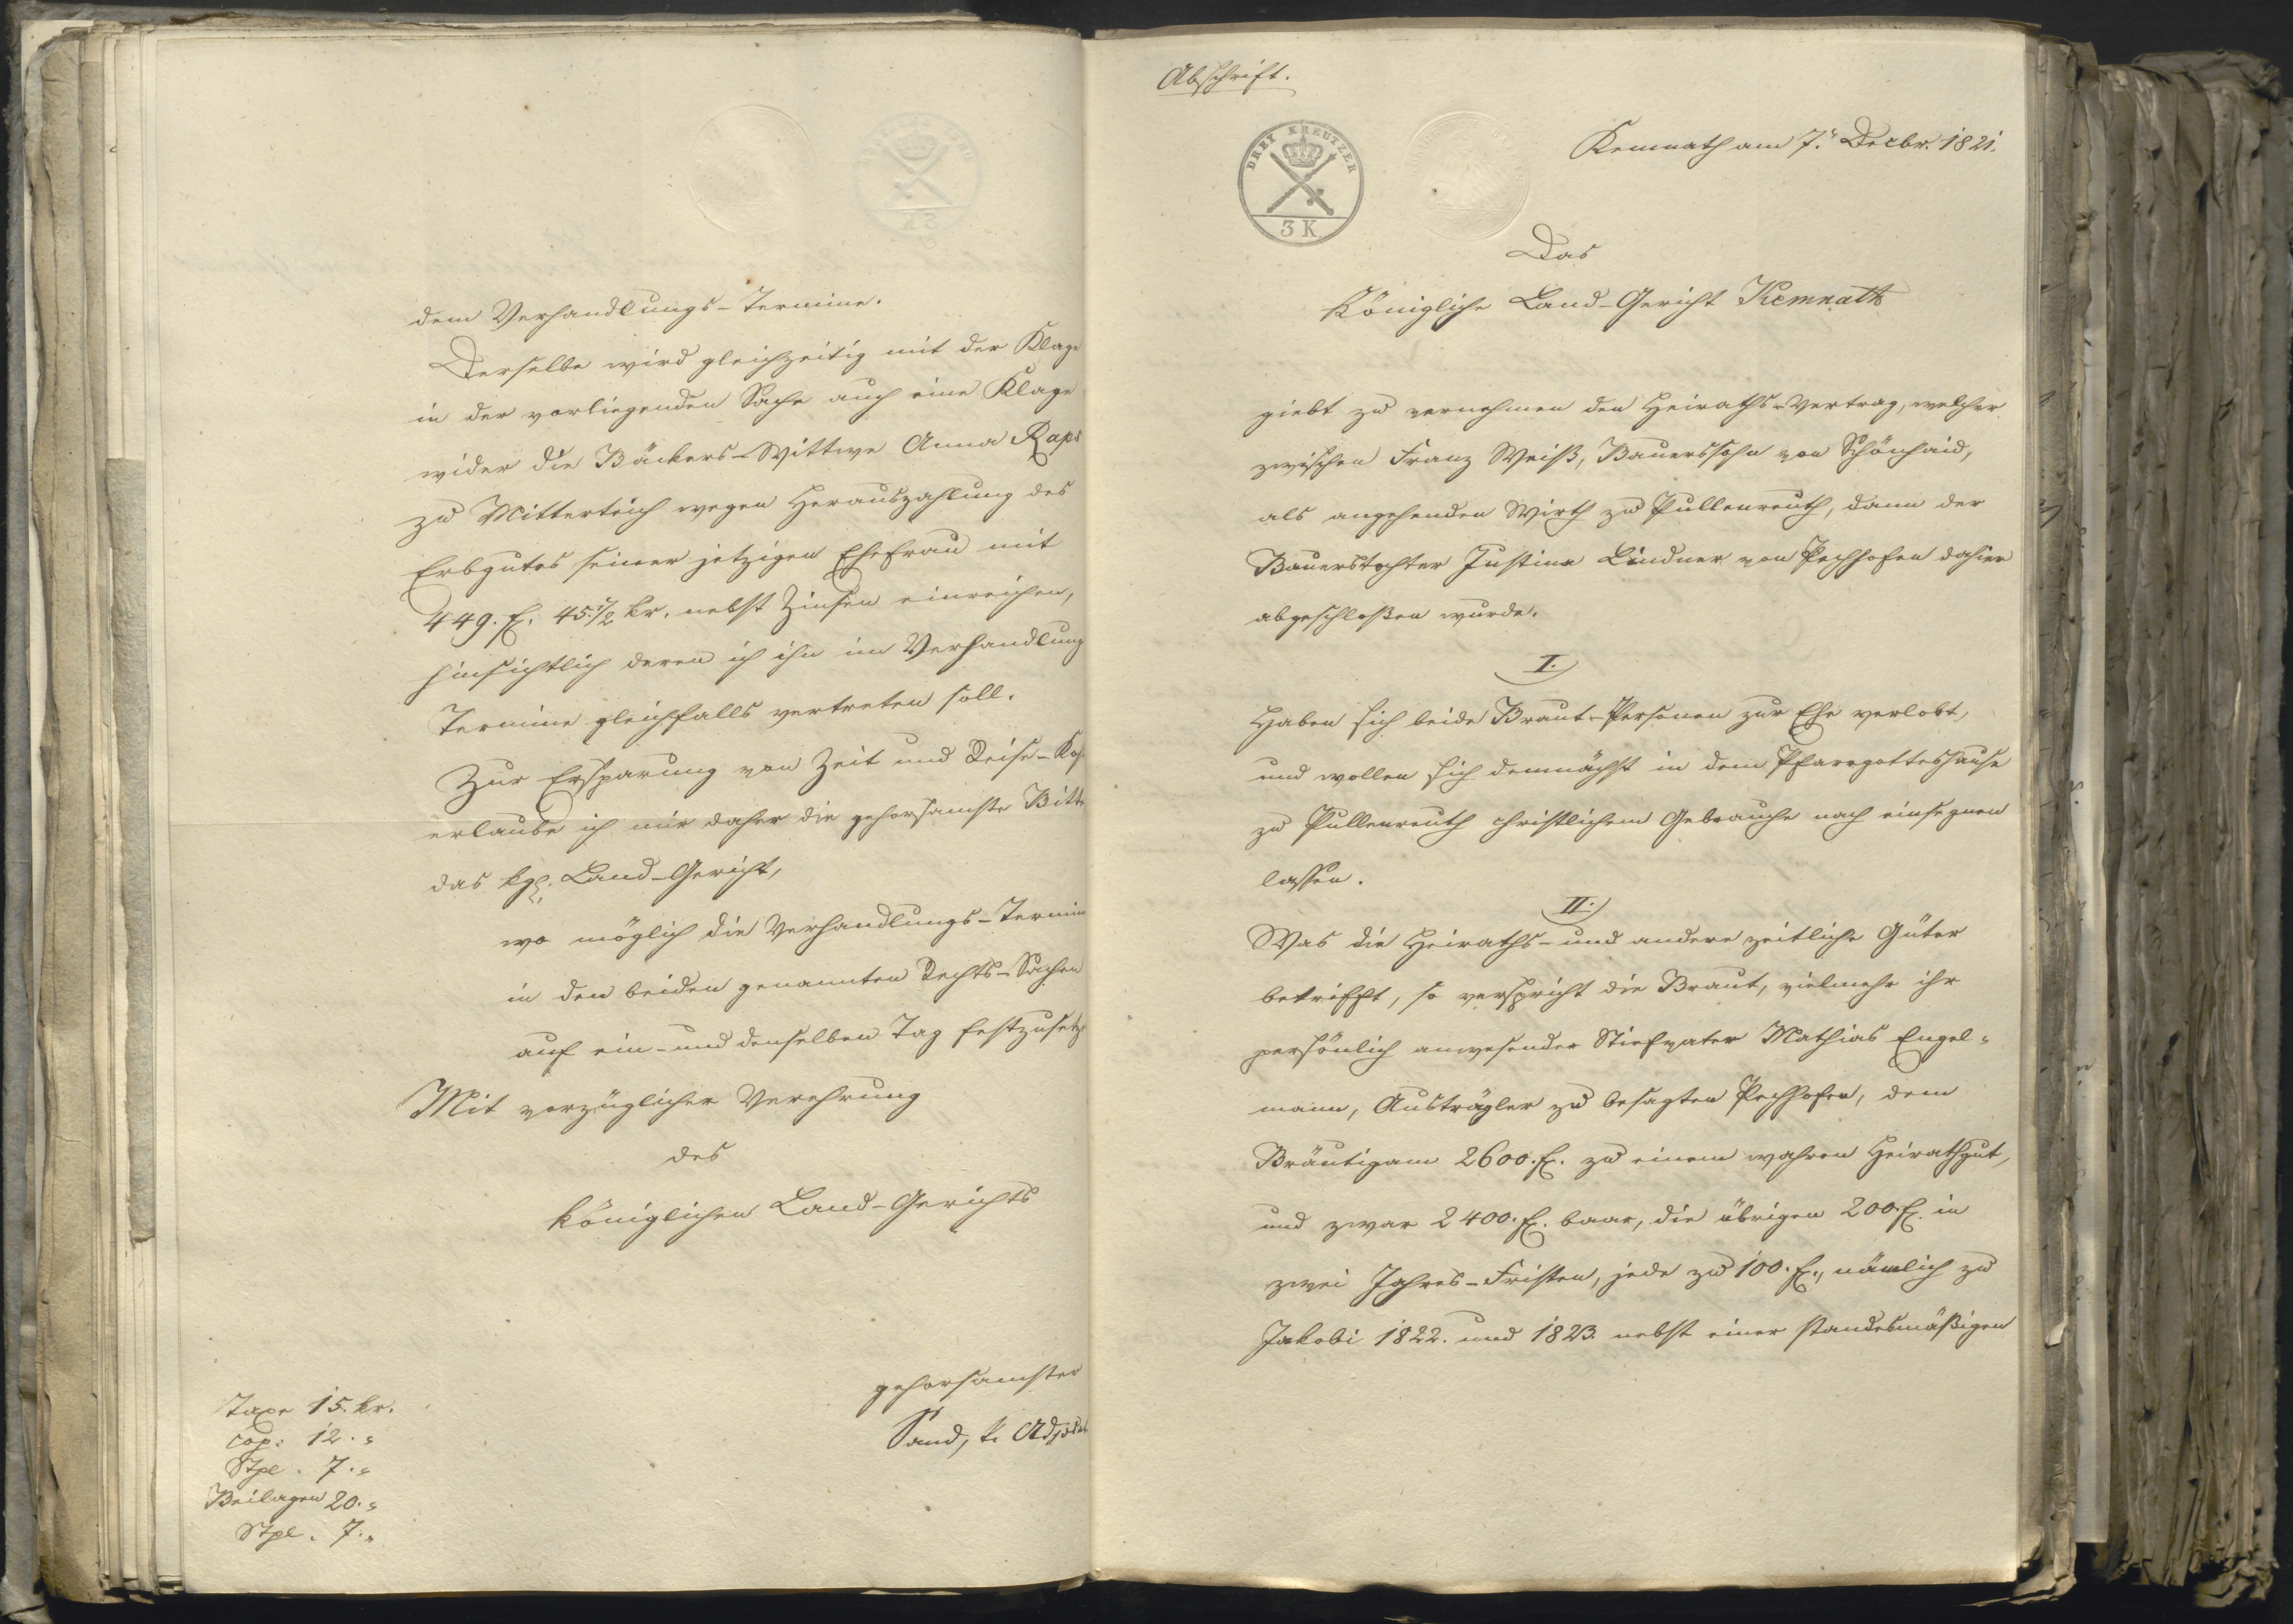 dem Verhandlungs-Termine.
Derselbe wird gleichzeitig mit der Klage
in der vorliegenden Sache auch eine Klage
wider die Bäckers-Wittwe Anna Raps
zu Mitterteich wegen Herauszahlung des
Erbgutes seiner jetzigen Ehefrau mit
449. f. 45 1/2 kr. nebst Zinsen einreichen,
hinsichtlich deren ich ihn im Verhandlung
Termine gleichfalls vertreten soll.
Zur Ersparung von Zeit und Reise-Kos
erlaube ich mir daher die gehorsamste Bitte
das kgl. Land-Gericht,
wo möglich die Verhandlungs-Termine
in den beiden genannten Rechts-Sachen
auf ein- und denselben Tag festzusetz
Mit vorzüglicher Verehrung
des
königlichen Land-Gerichts
gehorsamster
Sand, k. Adv
Taxe 15. kr.
cop. 12. "
Stpl. 7. "
Beilagen 20. "
Stpl. 7. "
Abschrift.
DREY KREUTZER
3 K.
Kemnath am 7. Decbr. 1821.
Das
Königliche Land-Gericht Kemnath
giebt zu vernehmen den Heiraths-Vertrag, welcher
zwischen Franz Weiß, Bauerssohn von Schönhaid,
als angehenden Wirth zu Pullenreuth, dann der
Bauerstochter Justina Lindner von Pechhofen dahier
abgeschloßen wurde.
I.
Haben sich beide Braut-Personen zur Ehe verlobt,
und wollen sich demnächst in dem Pfarrgotteshause
zu Pullenreuth christlichem Gebrauche nach einsegnen
lassen.
II.
Was die Heiraths- und andere zeitliche Güter
betrifft, so verspricht die Braut, vielmehr ihr
persönlich anwesender Stiefvater Mathias Engel-
mann, Austrägler zu besagten Pechhofen, dem
Bräutigam 2600. f. zu einem wahren Heirathgut,
und zwar 2400. f. baar, die übrigen 200. f. in
zwei Jahres-Fristen, jede zu 100. f., nämlich zu
Jakobi 1822. und 1823. nebst einer standesmäßigen